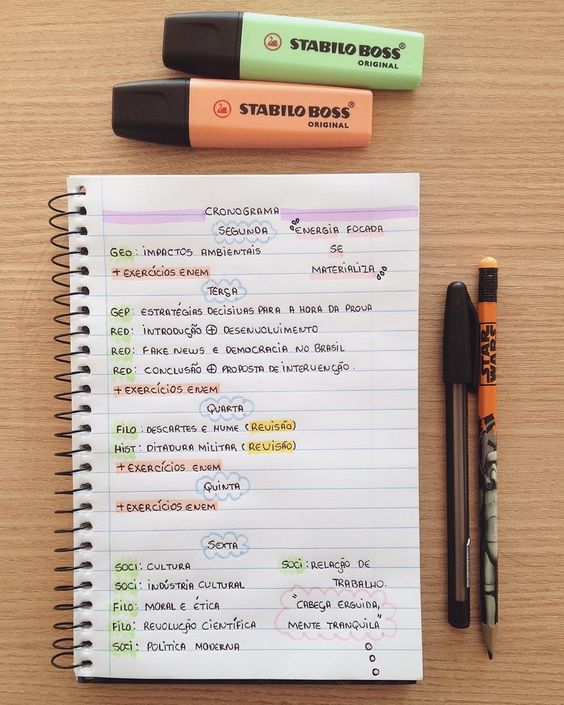 STABILO BOSS®
ORIGINAL
STABILO BOSS®
ORIGINAL
CRONOGRAMA
SEGUNDA
"ENERGIA FOCADA
SE
MATERIALIZA"
GEO: IMPACTOS AMBIENTAIS
+ EXERCÍCIOS ENEM
TERÇA
GEP: ESTRATÉGIAS DECISIVAS PARA A HORA DA PROVA
RED: INTRODUÇÃO ⊕ DESENVOLVIMENTO
RED: FAKE NEWS E DEMOCRACIA NO BRASIL
RED: CONCLUSÃO ⊕ PROPOSTA DE INTERVENÇÃO.
+ EXERCÍCIOS ENEM
QUARTA
FILO: DESCARTES E HUME (REVISÃO)
HIST: DITADURA MILITAR (REVISÃO)
+ EXERCÍCIOS ENEM
QUINTA
+ EXERCÍCIOS ENEM
SEXTA
SOCI: CULTURA
SOCI: INDÚSTRIA CULTURAL
FILO: MORAL E ÉTICA
FILO: REVOLUÇÃO CIENTÍFICA
SOCI: POLÍTICA MODERNA
SOCI: RELAÇÃO DE
TRABALHO.
"CABEÇA ERGUIDA,
MENTE TRANQUILA"
STAR
WARS